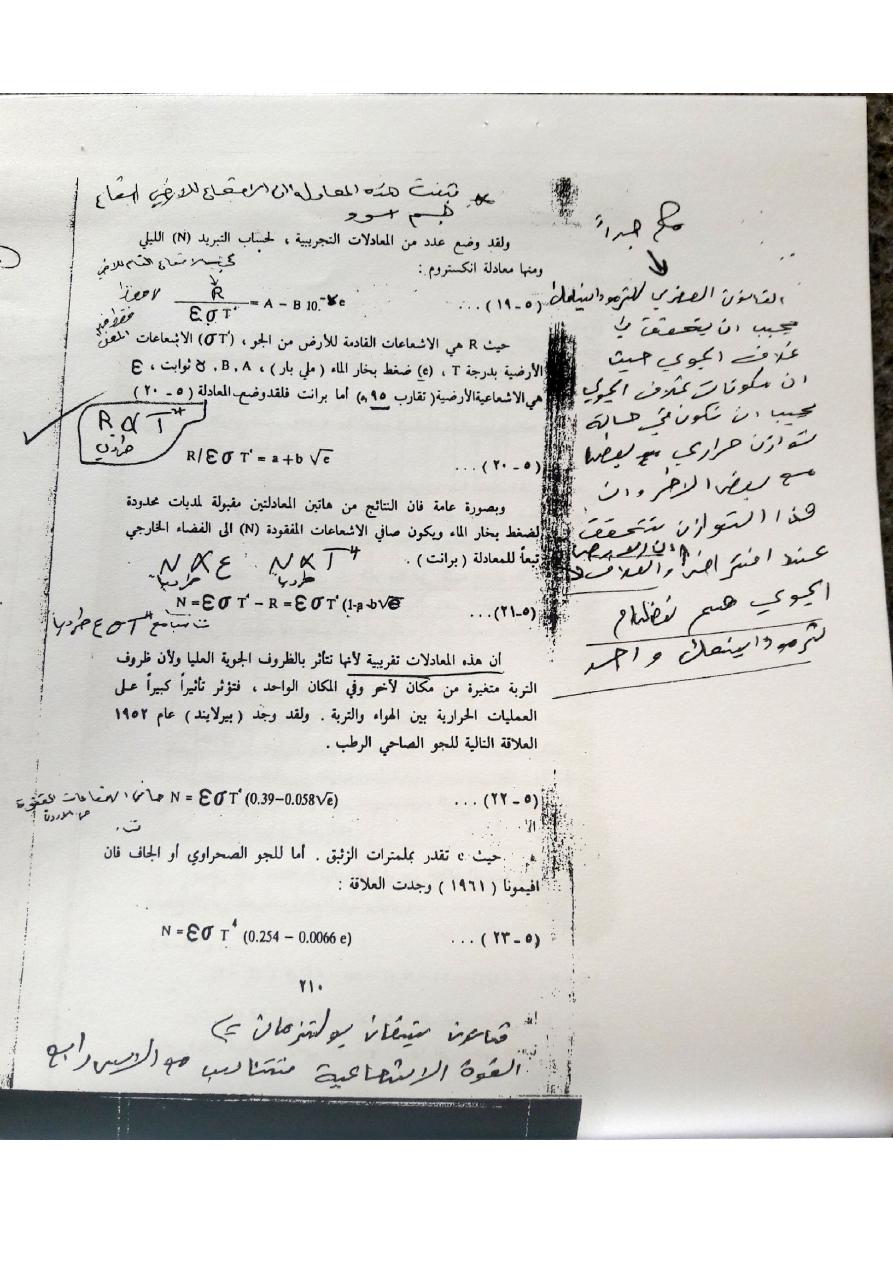 تثبت هذه المعادلة ان الاشعاع للارض اشعاع
جسم اسود
ولقد وضع عدد من المعادلات التجريبية ، لحساب التبريد (N) الليلي
ومنها معادلة انكستروم :
R / ƐσT⁴ = A – B 10.⁻ᵞe (٥ – ١٩) . . .
حيث R هي الاشعاعات القادمة للأرض من الجو ، (σT⁴) الاشعاعات
الأرضية بدرجة T ، (e) ضغط بخار الماء ( ملي بار ) ، B , A , ४ ثوابت ، Ɛ
هي الاشعاعية الأرضية ( تقارب ٩٥ ,٠ ) أما برانت فلقد وضع المعادلة ( ٥ – ٢٠ )
R α T⁴
طردي
R/Ɛσ T⁴ = a + b √e (٥ – ٢٠) . . .
وبصورة عامة فان النتائج من هاتين المعادلتين مقبولة لمديات محدودة
لضغط بخار الماء ويكون صافي الاشعاعات المفقودة (N) الى الفضاء الخارجي
تبعاً للمعادلة ( برانت ) .
N α Ɛ N α T⁴
طرديا طرديا
N = Ɛσ T⁴ – R = Ɛσ T⁴ (1-a -b√e (٥–٢١) . . .
تتناسب مع T⁴ σ Ɛ طرديا
أن هذه المعادلات تقريبية لأنها نتأثر بالظروف الجوية العليا ولأن ظروف
التربة متغيرة من مكان لآخر وفي المكان الواحد ، فتؤثر تأثيراً كبيراً على
العمليات الحرارية بين الهواء والتربة . ولقد وجد ( بيرلايند ) عام ١٩٥٢
العلاقة التالية للجو الصاحي الرطب .
N = Ɛσ T⁴ (0.39–0.058√e) (٥ – ٢٢) . . .
صافي الاشعاعات المفقودة
حيث e تقدر بملمترات الزئبق . أما للجو الصحراوي أو الجاف فان
افيمونا ( ١٩٦١ ) وجدت العلاقة :
N = Ɛσ T⁴ (0.254 – 0.0066 e) (٥ – ٢٣) . . .
٢١٠
قانون ستيفان بولتزمان
القوة الاشعاعية تتناسب مع الاس رابع
مهم جداً
القانون الصفري للثرموداينمك
يجب ان يتحقق في
غلاف الجوي حيث
ان مكونات غلاف الجوي
يجب ان تكون في حالة
توازن حراري مع بعضها
مع بعض الاخر وان
هذا التوازن يتحقق
عند افتراض ان الارض والغلاف
الجوي هم نظام
ثرموداينمك واحد